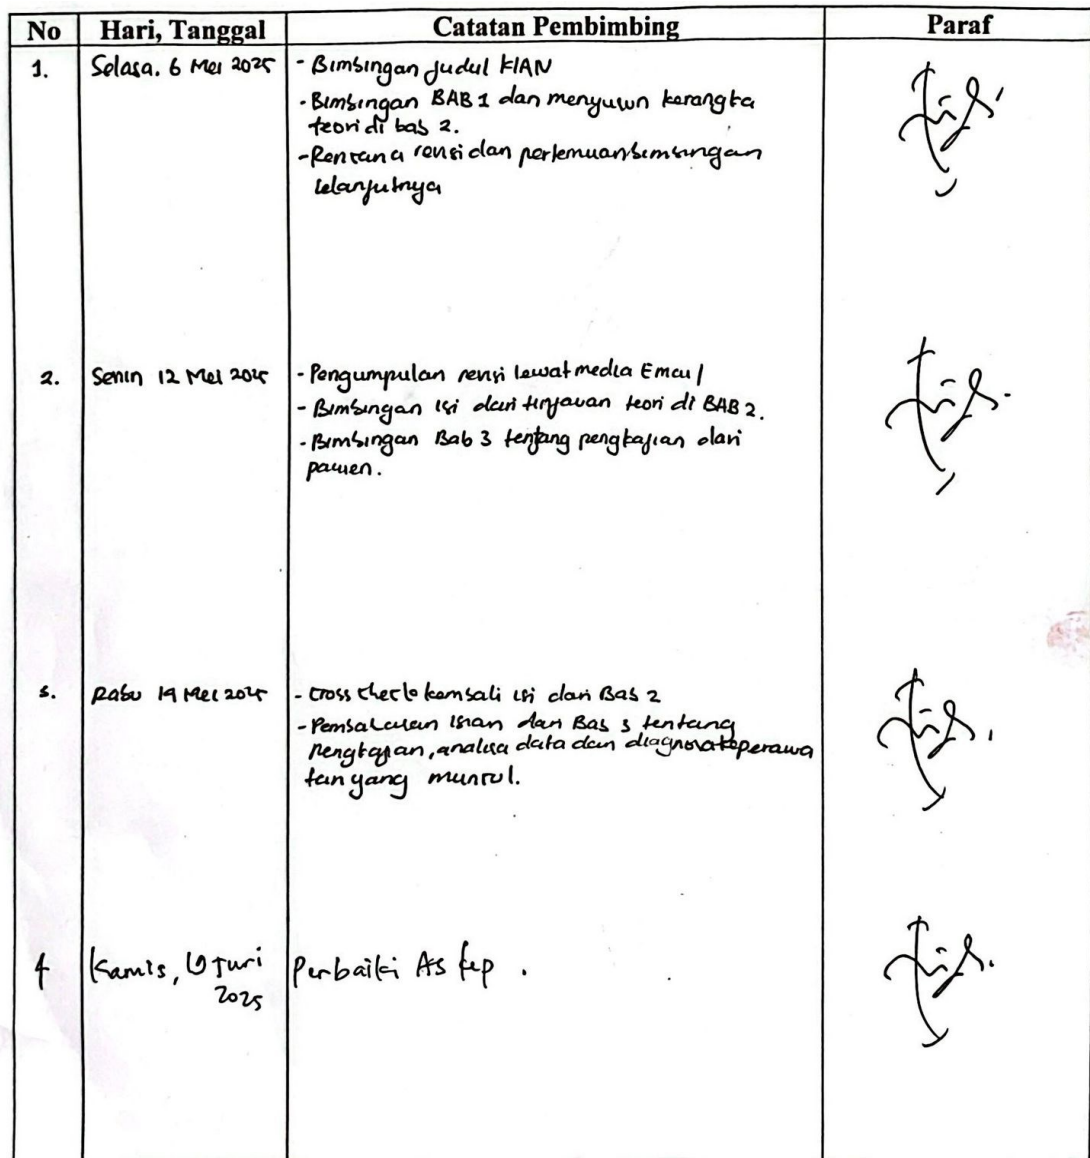 No Hari, Tanggal Catatan Pembimbing Paraf
1. Selasa. 6 Mei 2025 - Bimbingan Judul KIAN
- Bimbingan BAB 1 dan menyusun kerangka
teori di bab 2.
- Rencana revisi dan pertemuan bimbingan
selanjutnya
2. Senin 12 Mei 2025 - Pengumpulan revisi lewat media Email
- Bimbingan isi dari tinjauan teori di BAB 2.
- Bimbingan Bab 3 tentang pengkajian dari
pasien.
3. Rabu Mei 2025 - Cross check kembali isi dari Bab 2
- isian dari Bab 3 tentang
pengkajian, analisa data dan diagnosa keperawa
tan yang muncul.
4 Kamis, Juni Perbaiki Askep .
2025